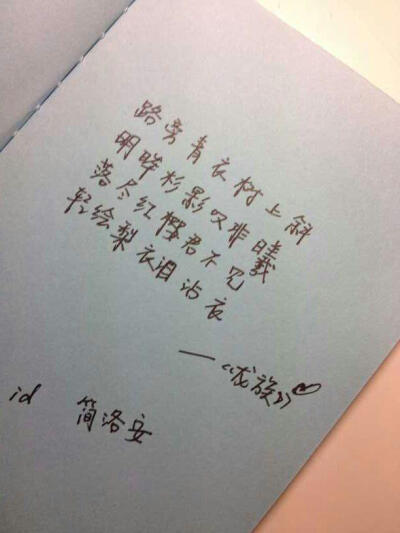 路旁青衣树上斜
明眸杉影叹非曦
落尽红樱君不见
轻绘梨衣泪沾衣
——《龙族》
id 简洛安